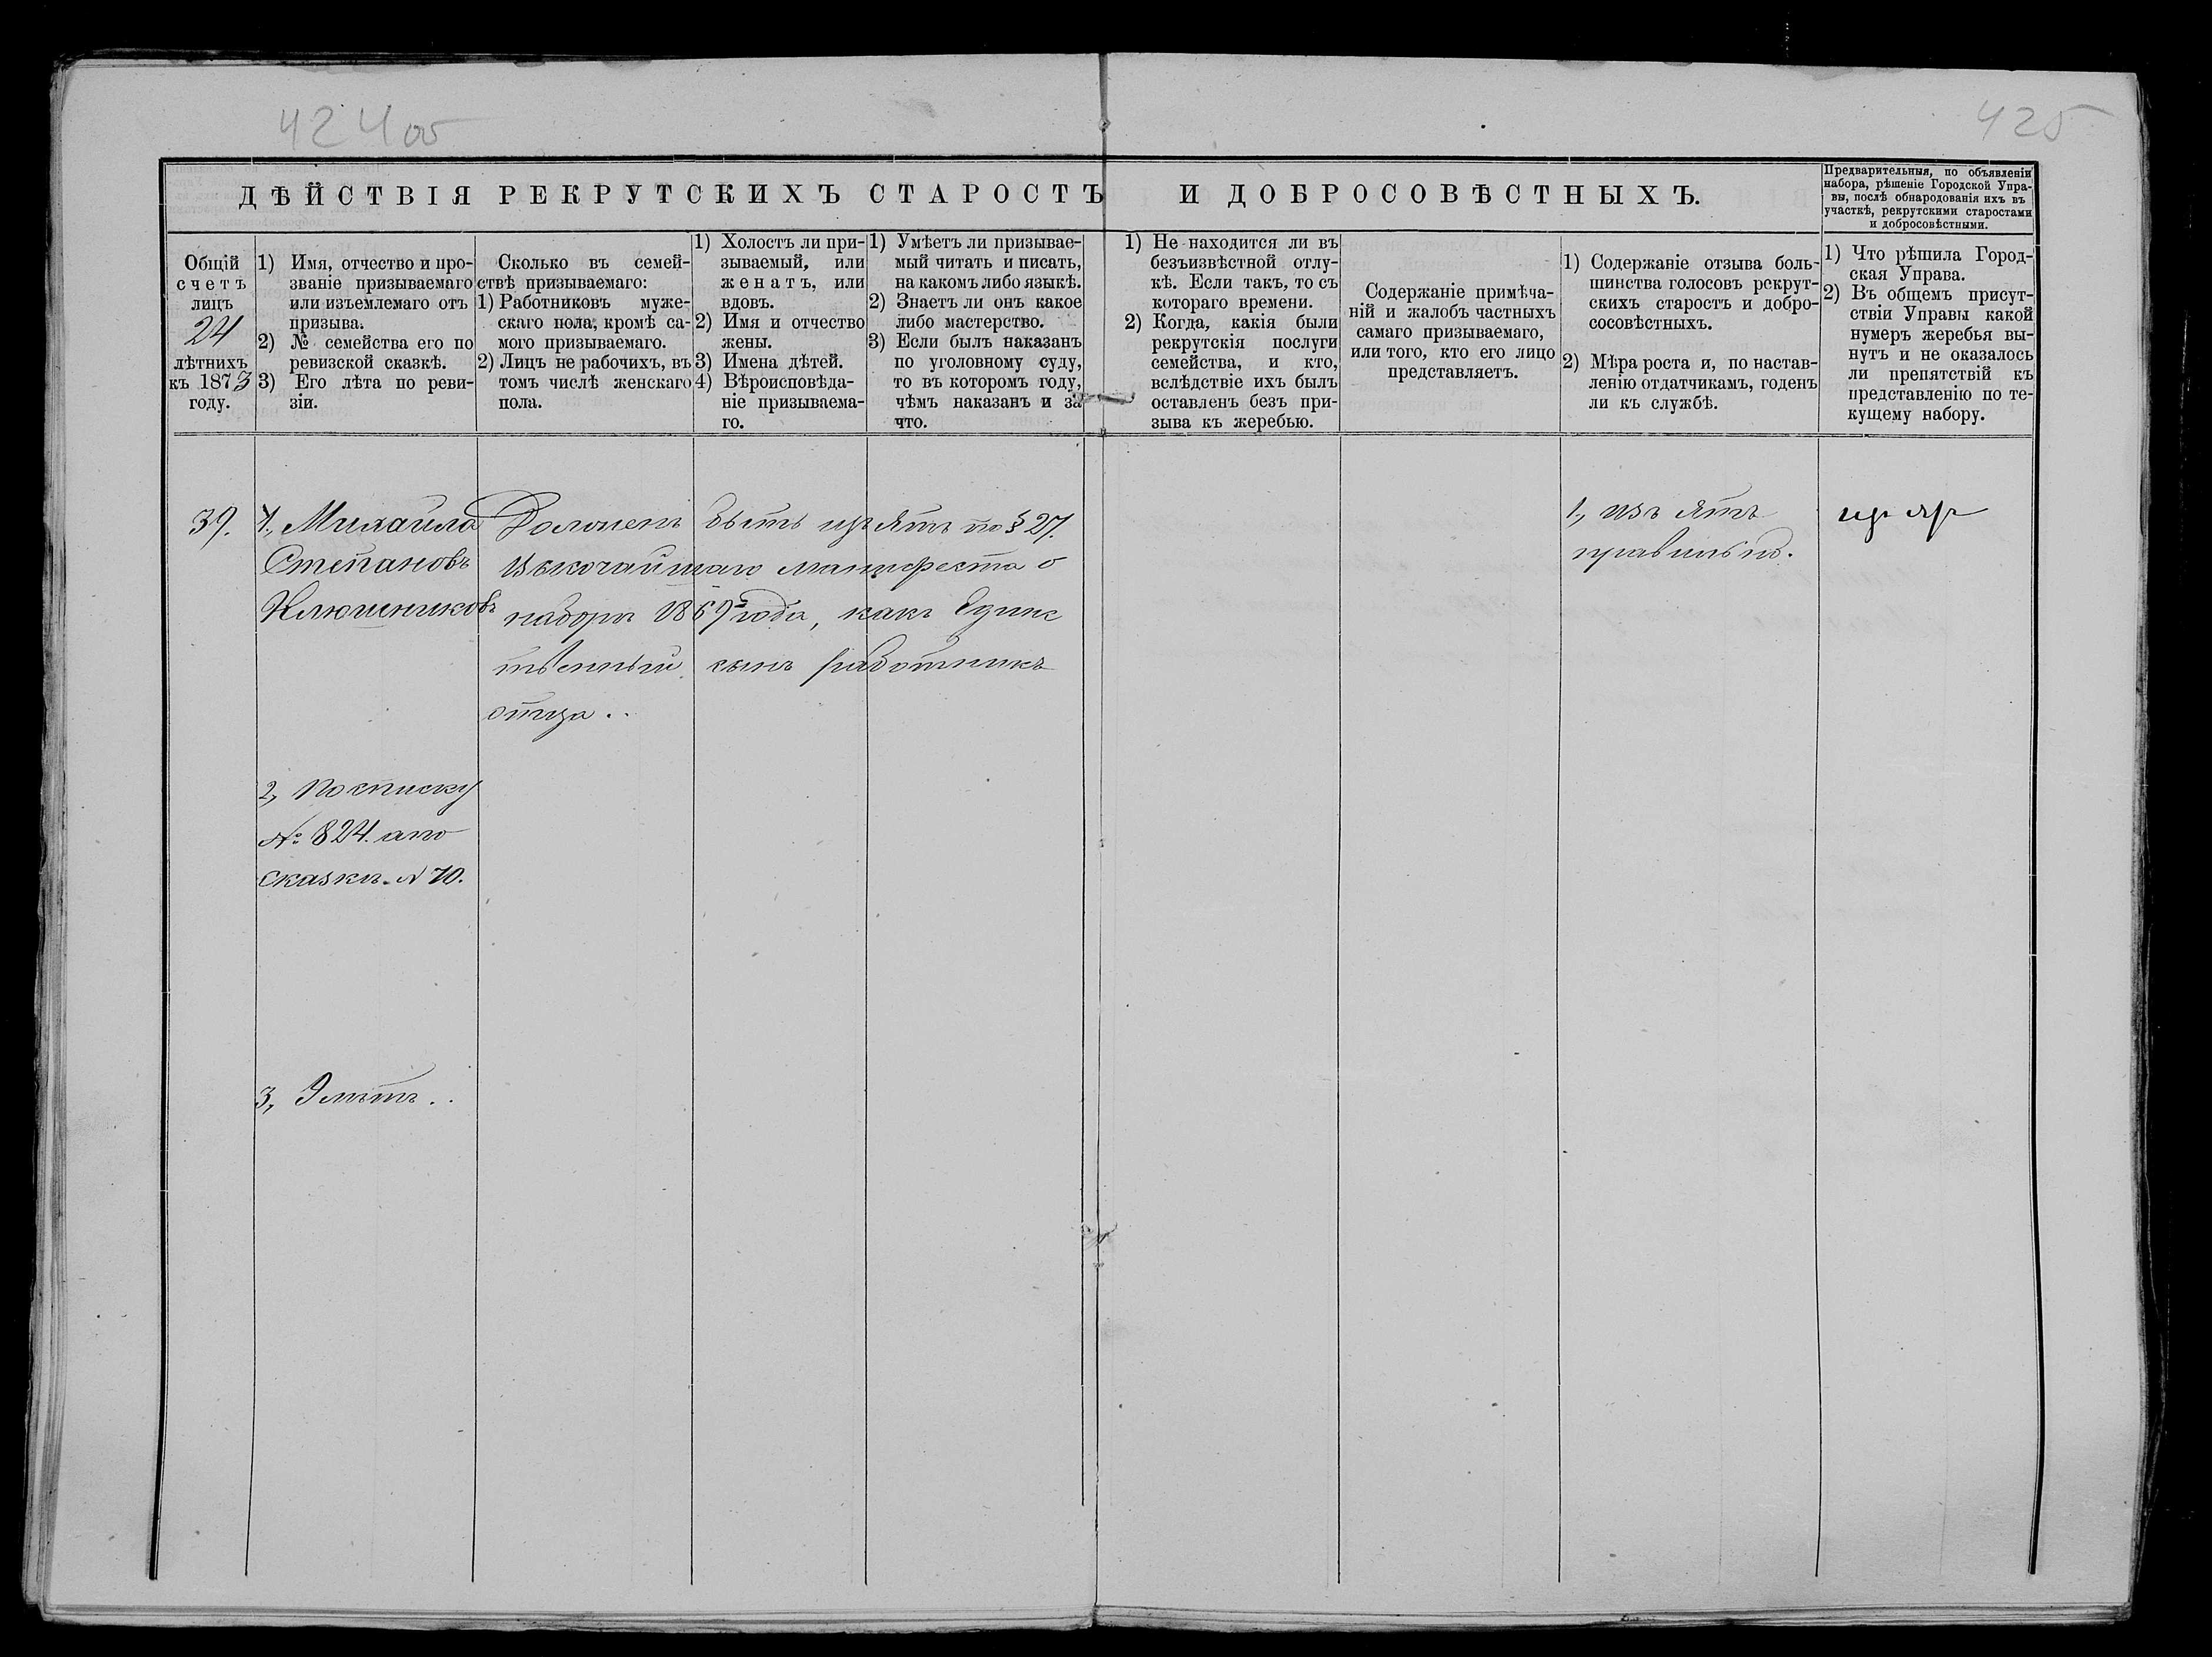 424 об
425
ДѢЙСТВІЯ РЕКРУТСКИХЪ СТАРОСТЪ И ДОБРОСОВѢСТНЫХЪ.
Предварительныя, по объявленіи
набора, рѣшеніе Городской Упра-
вы, послѣ обнародованія ихъ въ
участкѣ, рекрутскими старостами
и добросовѣстными.
Общій
счетъ
лицъ
24
лѣтнихъ
къ 1873
году.
1) Имя, отчество и про-
званіе призываемаго
или изъемлемаго отъ
призыва.
2) № семейства его по
ревизской сказкѣ.
3) Его лѣта по реви-
зіи.
Сколько въ семей-
ствѣ призываемаго:
1) Работниковъ муже-
скаго пола, кромѣ са-
мого призываемаго.
2) Лицъ не рабочихъ, въ
томъ числѣ женскаго
пола.
1) Холостъ ли при-
зываемый, или
женатъ, или
вдовъ.
2) Имя и отчество
жены.
3) Имена дѣтей.
4) Вѣроисповѣда-
ніе призываема-
го.
1) Умѣетъ ли призывае-
мый читать и писать,
на какомъ либо языкѣ.
2) Знаетъ ли онъ какое
либо мастерство.
3) Если былъ наказанъ
по уголовному суду,
то въ которомъ году,
чѣмъ наказанъ и за
что.
1) Не находится ли въ
безъизвѣстной отлу-
кѣ. Если такъ, то съ
котораго времени.
2) Когда, какія были
рекрутскія послуги
семейства, и кто,
вслѣдствіе ихъ былъ
оставленъ безъ при-
зыва къ жеребью.
Содержаніе примѣча-
ній и жалобъ частныхъ
самаго призываемаго,
или того, кто его лицо
представляетъ.
1) Содержаніе отзыва боль-
шинства голосовъ рекрут-
скихъ старостъ и добро-
сосовѣстныхъ.
2) Мѣра роста и, по настав-
ленію отдатчикамъ, годенъ
ли къ службѣ.
1) Что рѣшила Город-
ская Управа.
2) Въ общемъ присут-
ствіи Управы какой
нумеръ жеребья вы-
нутъ и не оказалось
ли препятствій къ
представленію по те-
кущему набору.
39.
1, Михаила
Степановъ
Ключниковъ
2, По списку
№ 824. а по
Сказкѣ. N 70.
3, 9 лѣтъ..
Должен быть изъятъ по § 27.
Высочайшаго манифеста о
наборѣ 1869 года, какъ Единс
твенный сынъ работникъ
отца..
1, изъятъ
правильно.